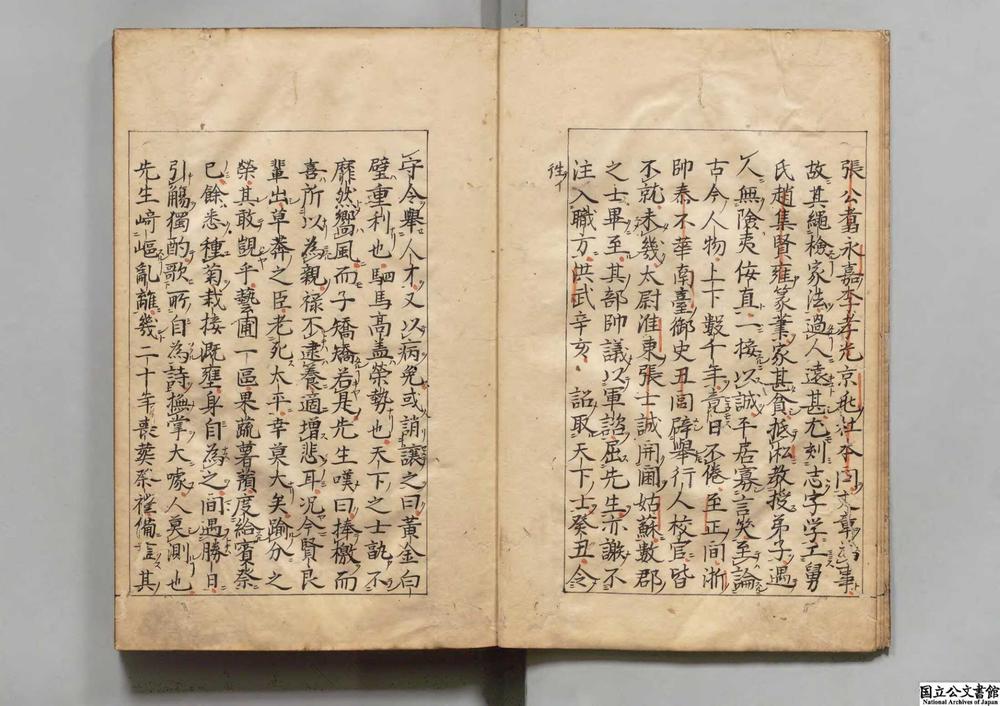 張公翥永嘉李孝光京兆杜本同文章
故其繩檢家法過人遠甚尤刻志字学工舅
氏趙集賢雍篆業家甚貧抵淞教授弟子遇
人無險夷侫直一接以誠平居寡言笑至論
古今人物上下數千年竟日不倦至正间浙
帥泰不華南臺御史丑閭辟舉行人校官皆
不就未幾太尉淮東張士誠開閫姑蘇數郡
之士畢至其部帥議以軍諮屈先生亦謝不
注入職方洪武辛亥詔取天下士癸丑令
守令舉人才又以病免或誚讓之曰黃金白
璧重利也駟馬高盖榮勢也天下之士孰不
靡然嚮風而子矯矯若是先生嘆曰捧檄而
喜所以為親禄不逮養適增悲耳况今賢良
輩出草莽之臣老死太平幸莫大矣踰分之
榮其敢覬乎藝圃一區果蔬薯蕷度給賓祭
已餘悉種菊栽接溉壅身自為之间遇勝日
引觴獨酌歌所自為詩撫掌大噱人莫測也
先生崎嶇亂離幾二十年喪葬祭禮備盡其
国立公文書館
National Archives of Japan